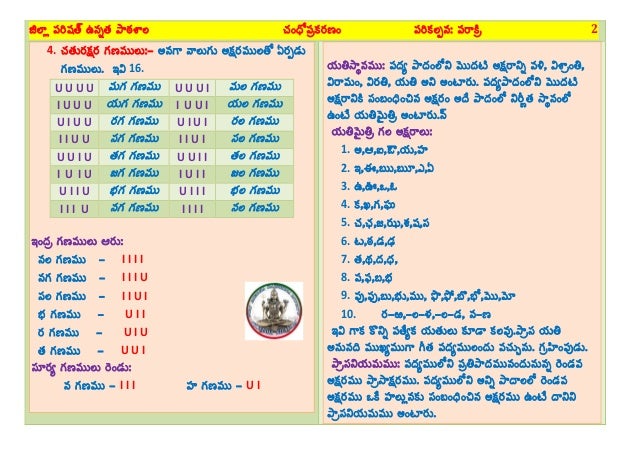 జిల్లా పరిషత్ ఉన్నత పాఠశాల చంధోప్రకరణం పరికల్పన: పరాక్రి 2
4. చతురక్షర గణములు:– అనగా నాలుగు అక్షరములతో ఏర్పడు
గణములు. ఇవి 16.
U U U U మగ గణము U U U I మల గణము
I U U U యగ గణము I U U I యల గణము
U I U U రగ గణము U I U I రల గణము
I I U U సగ గణము I I U I సల గణము
U U I U తగ గణము U U I I తల గణము
I U I U జగ గణము I U I I జల గణము
U I I U భగ గణము U I I I భల గణము
I I I U నగ గణము I I I I నల గణము
ఇంద్ర గణములు ఆరు:
నల గణము – I I I I
నగ గణము – I I I U
సల గణము – I I U I
భ గణము – U I I
ర గణము – U I U
త గణము – U U I
సూర్య గణములు రెండు:
న గణము – I I I హ గణము – U I
యతిస్థానము: పద్య పాదంలోని మొదటి అక్షరాన్ని వళి, విశ్రాంతి,
విరామం, విరతి, యతి అని అంటారు. పద్యపాదంలోని మొదటి
అక్షరానికి సంబంధించిన అక్షరం అదే పాదంలో నిర్ణీత స్థానంలో
ఉంటే యతిమైత్రి అంటారు.న్
యతిమైత్రి గల అక్షరాలు:
1. అ,ఆ,ఐ,ఔ,య,హ
2. ఇ,ఈ,ఋ,ౠ,ఎ,ఏ
3. ఉ,ఊ,ఒ,ఓ
4. క,ఖ,గ,ఘ
5. చ,ఛ,జ,ఝ,శ,ష,స
6. ట,ఠ,డ,ఢ
7. త,థ,ద,ధ,
8. ప,ఫ,బ,భ
9. పు,ఫు,బు,భు,ము, పొ,ఫో,బొ,భో,మొ,మో
10. ర–ఱ,–ల–ళ,–ల–డ, న–ణ
ఇవి గాక కొన్ని ప్రత్యేక యతులు కూడా కలవు.ప్రాస యతి
అనునది ముఖ్యముగా గీత పద్యములందు వచ్చును. గ్రహింపుడు.
ప్రాసనియమము: పద్యములోని ప్రతిపాదమునందునున్న రెండవ
అక్షరము ప్రాసాక్షరము. పద్యములోని అన్ని పాదాలలో రెండవ
అక్షరము ఒకే హల్లునకు సంబంధించిన అక్షరము ఉంటే దానిని
ప్రాసనియమము అంటారు.